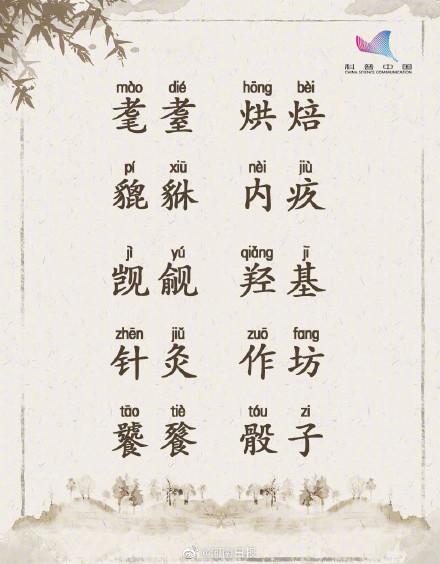 科普中国
CHINA SCIENCE COMMUNICATION
mào dié hōng bèi
耄耋 烘焙
pí xiū nèi jiù
貔貅 内疚
jì yú qiǎng jī
觊觎 羟基
zhēn jiǔ zuō fang
针灸 作坊
tāo tiè tóu zi
饕餮 骰子
@河南日报